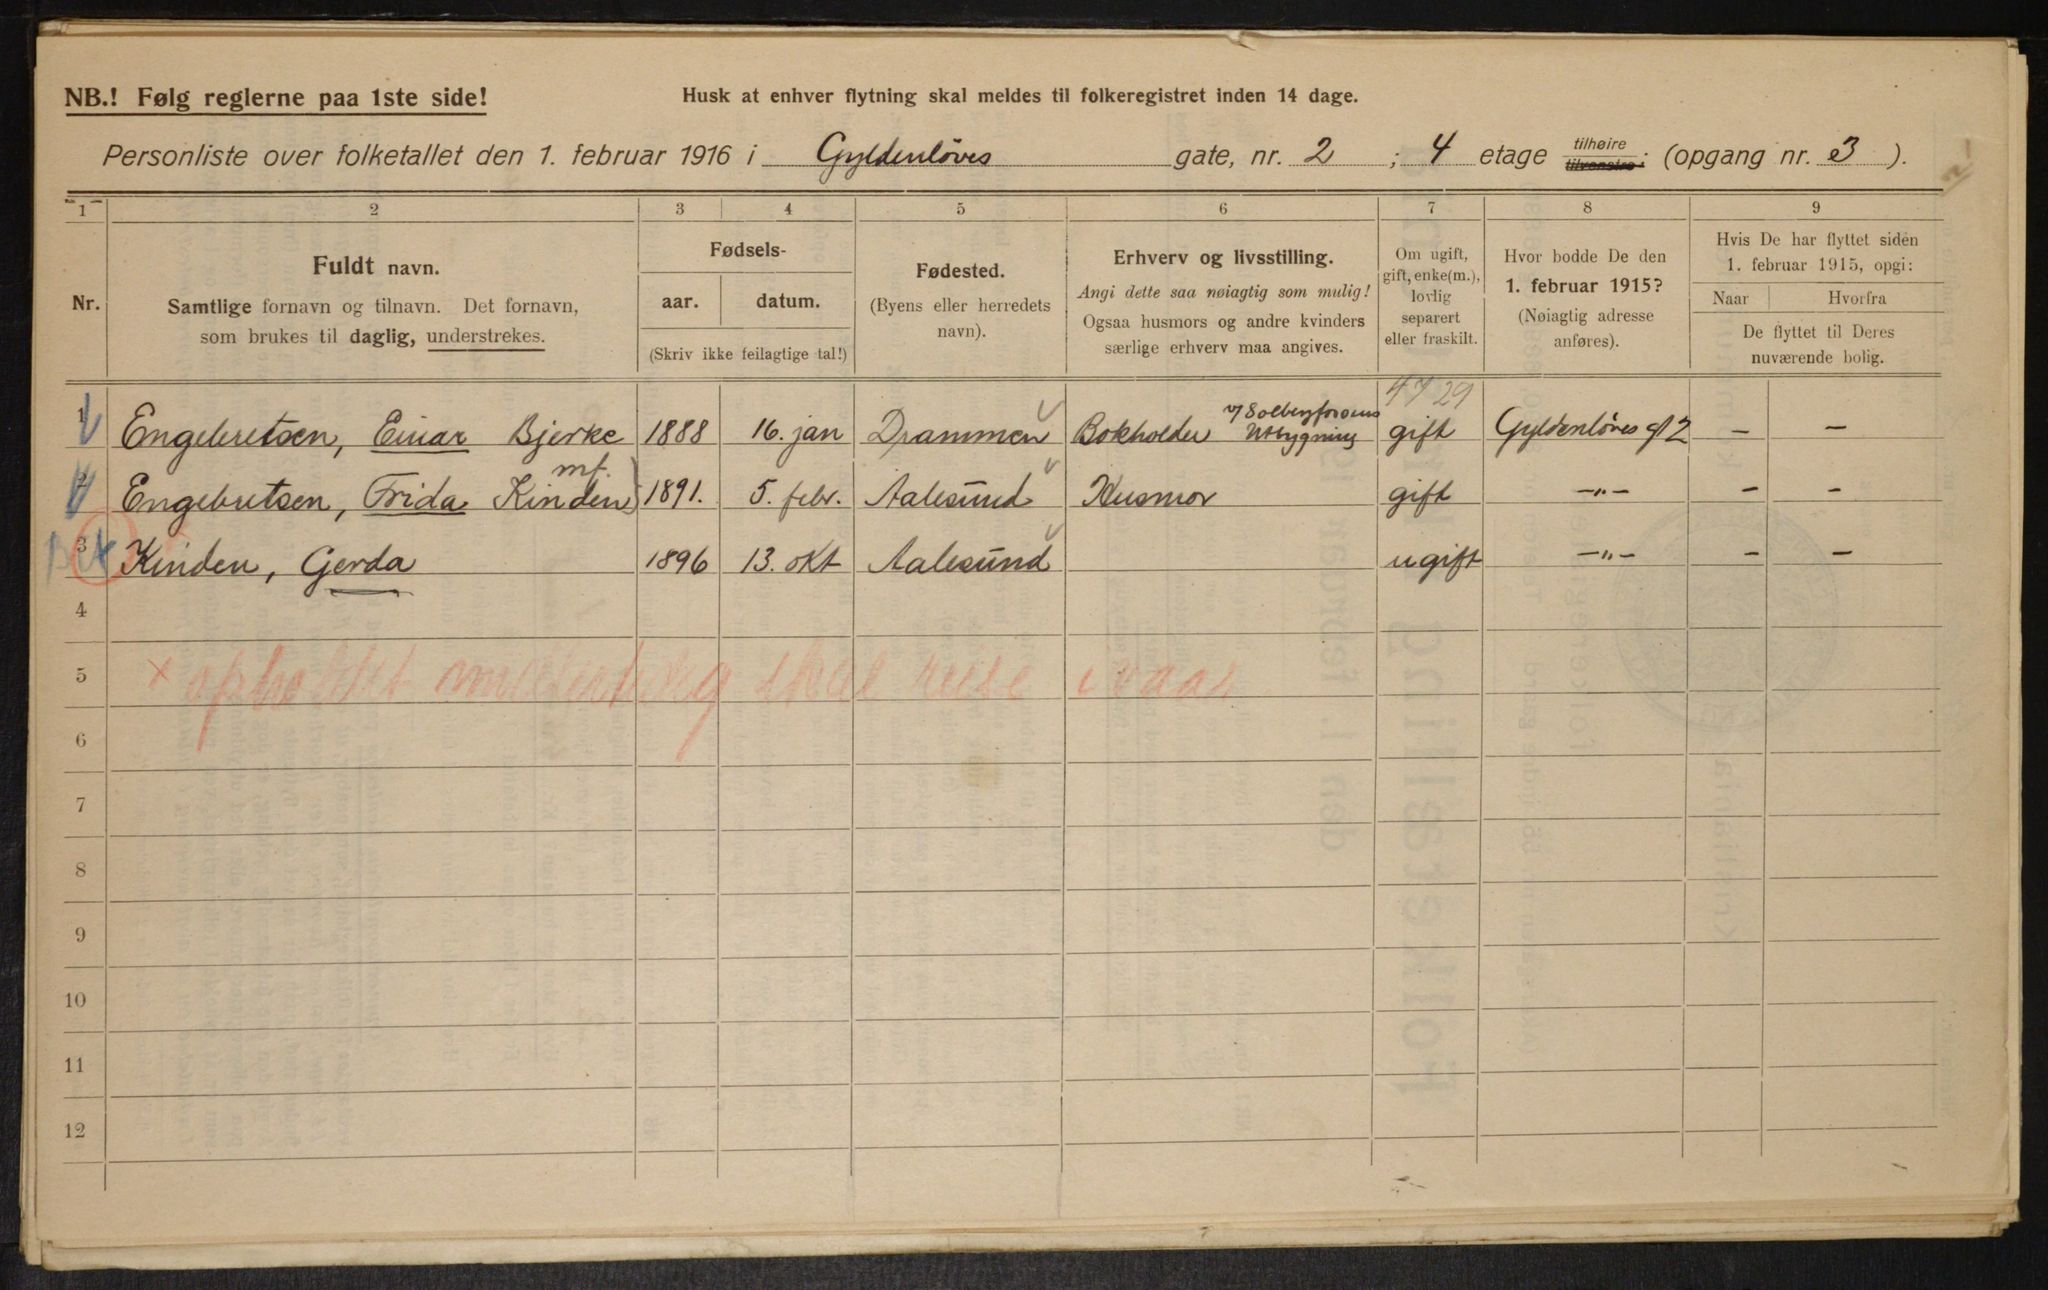 NB.! Følg reglerne paa 1ste side!
Husk at enhver flytning skal meldes til folkeregistret inden 14 dage.
Personliste over folketallet den 1. februar 1916 i Gyldenløves gate, nr. 2 ; 4 etage tilhøire tilvenstre (opgang nr. 3 ).
1 2 3 4 5 6 7 8 9
Nr.
Fuldt navn.
Samtlige fornavn og tilnavn. Det fornavn,
som brukes til daglig, understrekes.
Fødsels-
aar. datum.
(Skriv ikke feilagtige tal!)
Fødested.
(Byens eller herredets
navn).
Erhverv og livsstilling.
Angi dette saa nøiagtig som mulig!
Ogsaa husmors og andre kvinders
særlige erhverv maa angives.
Om ugift,
gift, enke(m.),
lovlig
separert
eller fraskilt.
Hvor bodde De den
1. februar 1915?
(Nøiagtig adresse
anføres).
Hvis De har flyttet siden
1. februar 1915, opgi:
Naar Hvorfra
De flyttet til Deres
nuværende bolig.
1 Engebretsen, Einar Bjerke 1888 16. jan Drammen Bokholder v/ Solbergfossens Utbygning gift Gyldenløves gt 2 — —
2 Engebretsen, Frida Kinden 1891. 5. febr. Aalesund Husmor gift —"— — —
3 Kinden, Gerda 1896 13. okt Aalesund ugift —"— — —
4
5 x opholdt midlertidig skal reise i vaar
6
7
8
9
10
11
12